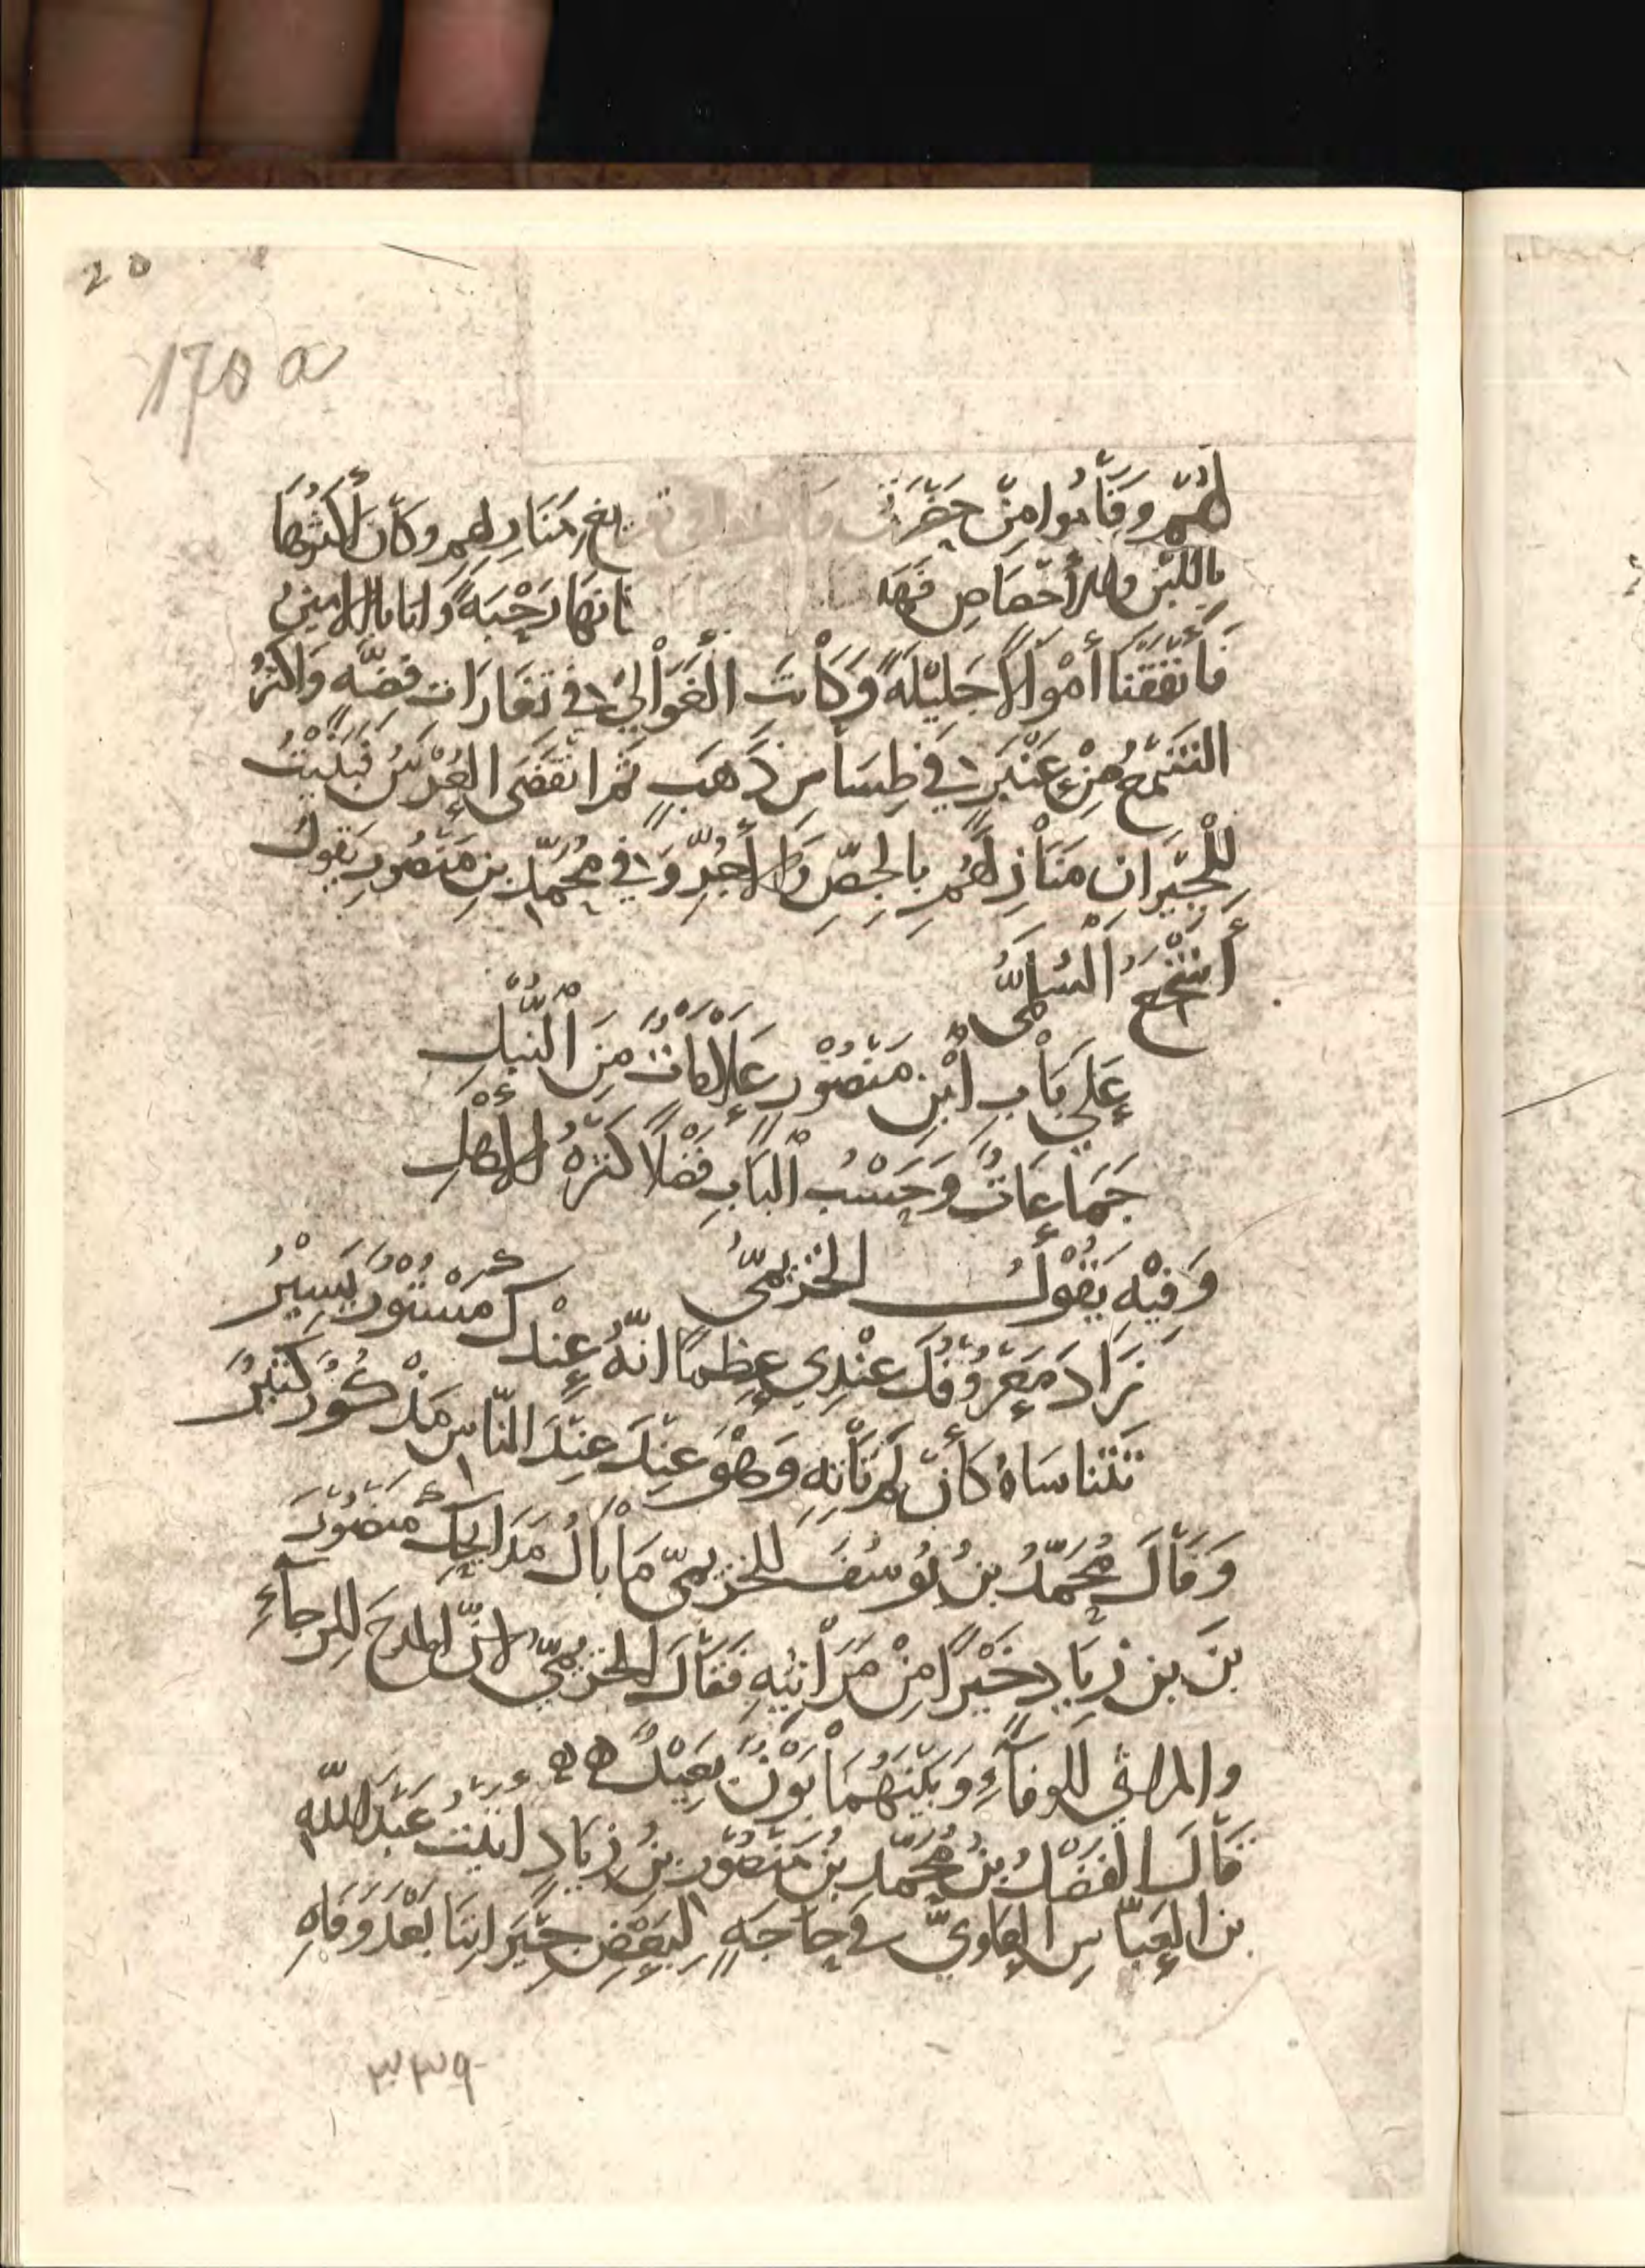 20
170 a
لَهُمْ وَقَامُوا مِنْ حَضْرَتي مَنَازِلِهِم وَكَانَ أَكْثَرُهَا
بِاللَّبِنِ والأَخْصَاصِ فَهَدَ رَحْبَةً وَانَا بَالرامِينى
فَأَنْفَقْنَا أَمْوَالًا جَلِيْلَةً وَكَانَتَ الْغَوَالِيُ فِي تَغَارَات فِضَّه وَاكْثَرُ
الشَّمْعُ مِنْ عَنْبَرٍ فِي طِسَاسِ ذَهَبٍ ثُمَّ انْقَضَى العُرْسُ فَبَنَيْتُ
لِلْجِيْرَانِ مَنَازِلَهُمِ بِالجِصِّ وَالأَجُرِّ وَفي مُحَمَّدِ بنِ مَنْصُورٍ يَقُولُ
أَشْجَعُ السُّلَمِيُّ
عَلَى بَابِ ابْنِ مَنْصُوْرٍ عَلَامَاتٌ مِنَ النُّبْلِ
جَمَاعَاتٌ وَحَسْبُ الْبَابِ فَضْلًا كَثْرَةُ الأَهْلِ
وَفِيْهِ يَقُوْلُ الخُزيمىُّ
زَادَ مَعْرُوْفُكَ عِنْدِي عِظَمًا انّهُ عِنْدَكَ مَسْتُوْرٌ يَسِيْرُ
تَتَنَاسَاهُ كَأَنْ لَمْ تَأْتِهِ وَهْوَ عِنْدَ عِنْدَ النّاسِ مَذْكُوْرٌ كَثِيْرٌ
وَقَالَ مُحَمَّدُ بنُ يُوسُفَ للخُزيمىّ مَا بَالُ مَدَايِحِكَ مَنْصُوْرَ
بنَ بنِ زِيَادٍ خَيْرًا مِنْ مَرَاثِيْهِ فَقَالَ الخُزيمىُّ انّ المدحَ لِلرجآءِ
والمراثي للوفآءِ وَبَيْنَهُمَا بَوْنٌ بَعِيْدٌ
قَالَ الْفَضْلُ بنُ مُحَمَّدِ بنُ مَنْصُوْرِ بنُ زِيَادٍ اتَيْتُ عَبْدَ اللّهِ
بن العَبّاسِ العلوِيَّ فِي حَاجَةٍ لِبَعْضِ جِيْرَانِنَا بَعْدَ وَفَاهِ
٣٣٩